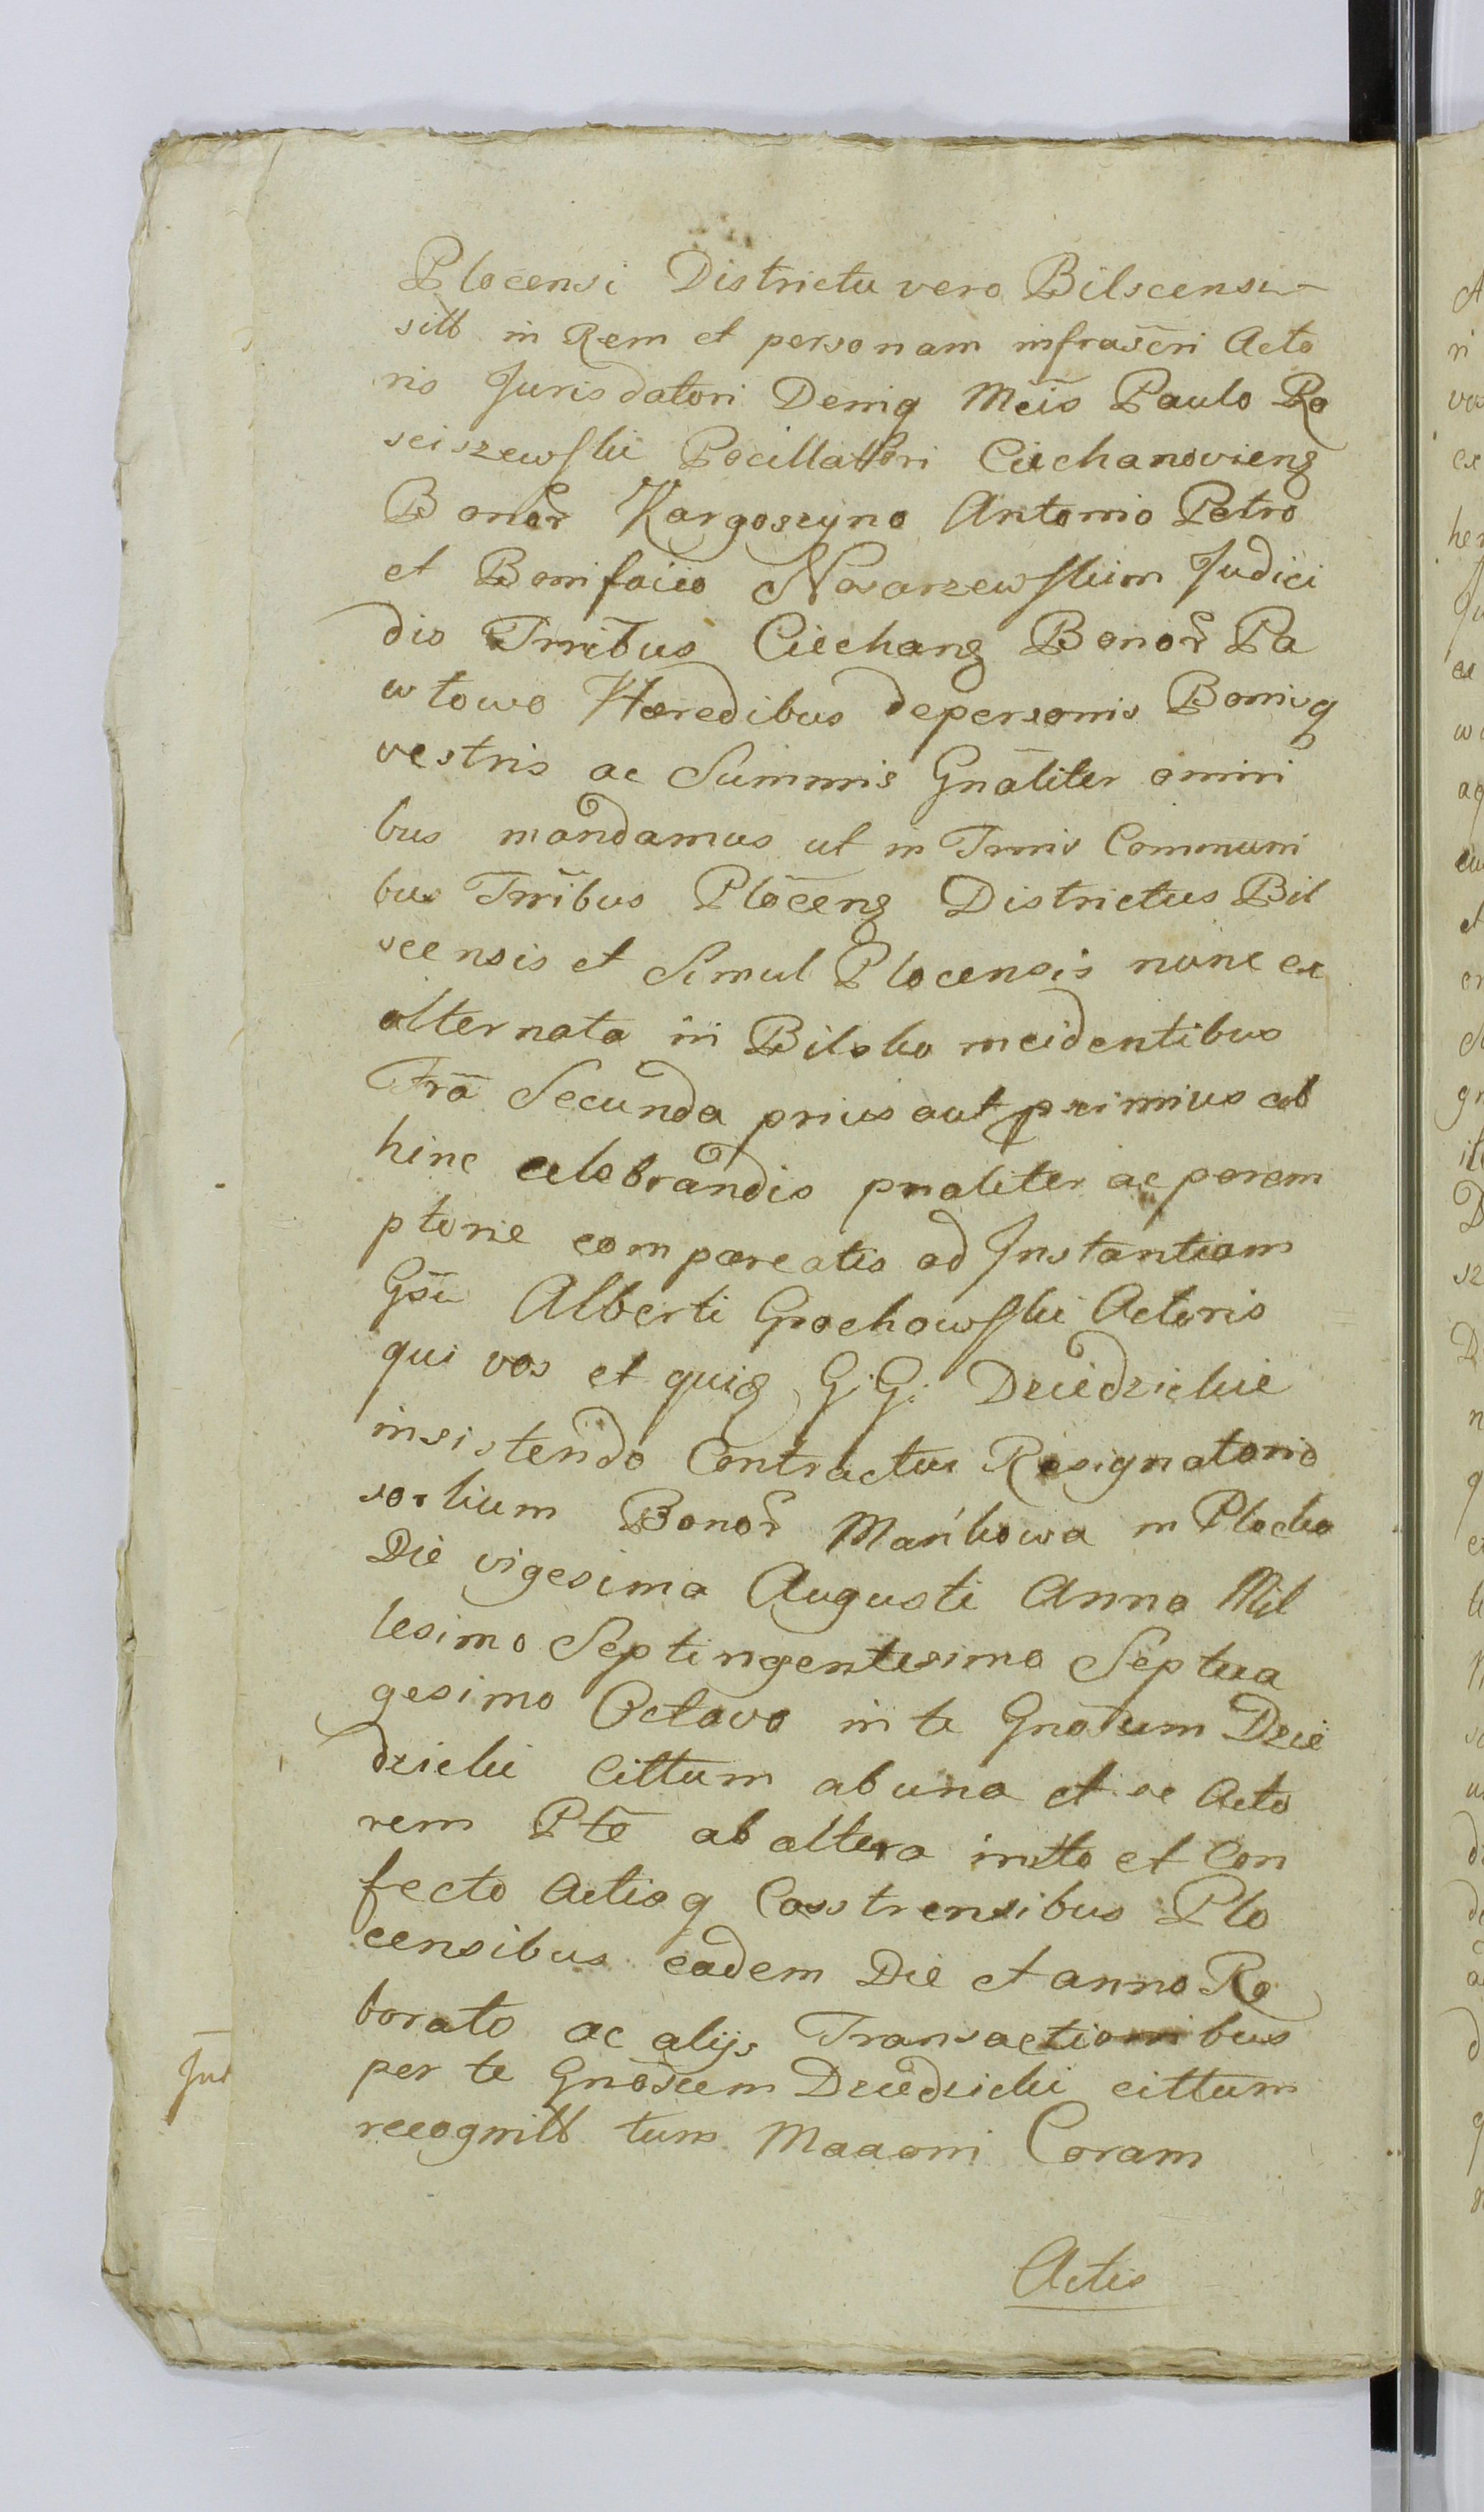 Plocensi Districtu vero Bilscensi
sitt in Rem et personam infrascri Acto
ris Jurisdatori Deniq Mcis Paulo Ro
sciszewski Pocillatori Ciechanovieng
Bonor Kargoszyno Antonio Petro
et Bonifacio Nosarzewskim Judici
dis Trribus Ciechang Bonor Pa
wtowo Hæredibus de personis Bonisq
vestris ac Summis Gnaliter omni
bus mandamus ut in Trmis Communi
bus Trribus Ploceng Districtus Bil
scensis et Simul Plocensis nunc ex
alternata in Bilsko incidentibus
Fra Secunda prius aut pximius ab
hinc celebrandis pnaliter ac perem
ptorie compareatis ad Instantiam
Gsi Alberti Grochowski Actoris
qui vos et quiq G. G. Dziedzickie
insistendo Contractui Resignatorio
sortium Bonor Mańkowa in Plocko
Die vigesima Augusti Anno Mil
lesimo Septingentesimo Septua
gesimo Octavo in te Gnosum Dzie
dzicki Cittum ab una et se Acto
rem Pte ab altera inito et Con
fecto Actisq Casstrensibus Plo
censibus eadem Die et anno Ro
borato ac alijs Transactionibus
per te Gnosum Dziedzicki cittum
recognitt tum Maaoni Coram
Actis